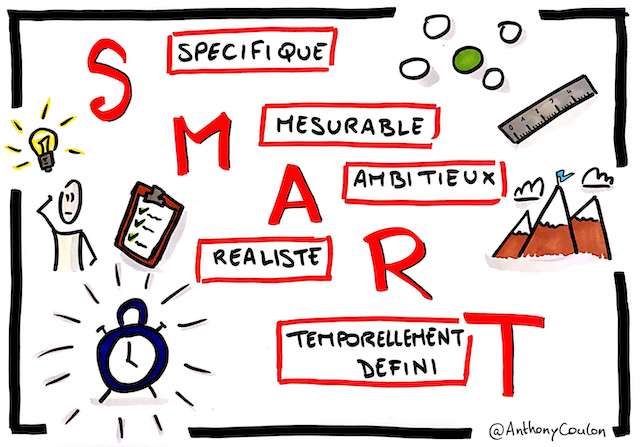 S SPECIFIQUE
M MESURABLE
A AMBITIEUX
R REALISTE
T TEMPORELLEMENT
DEFINI
0 1 2 3 4
@AnthonyCoulon